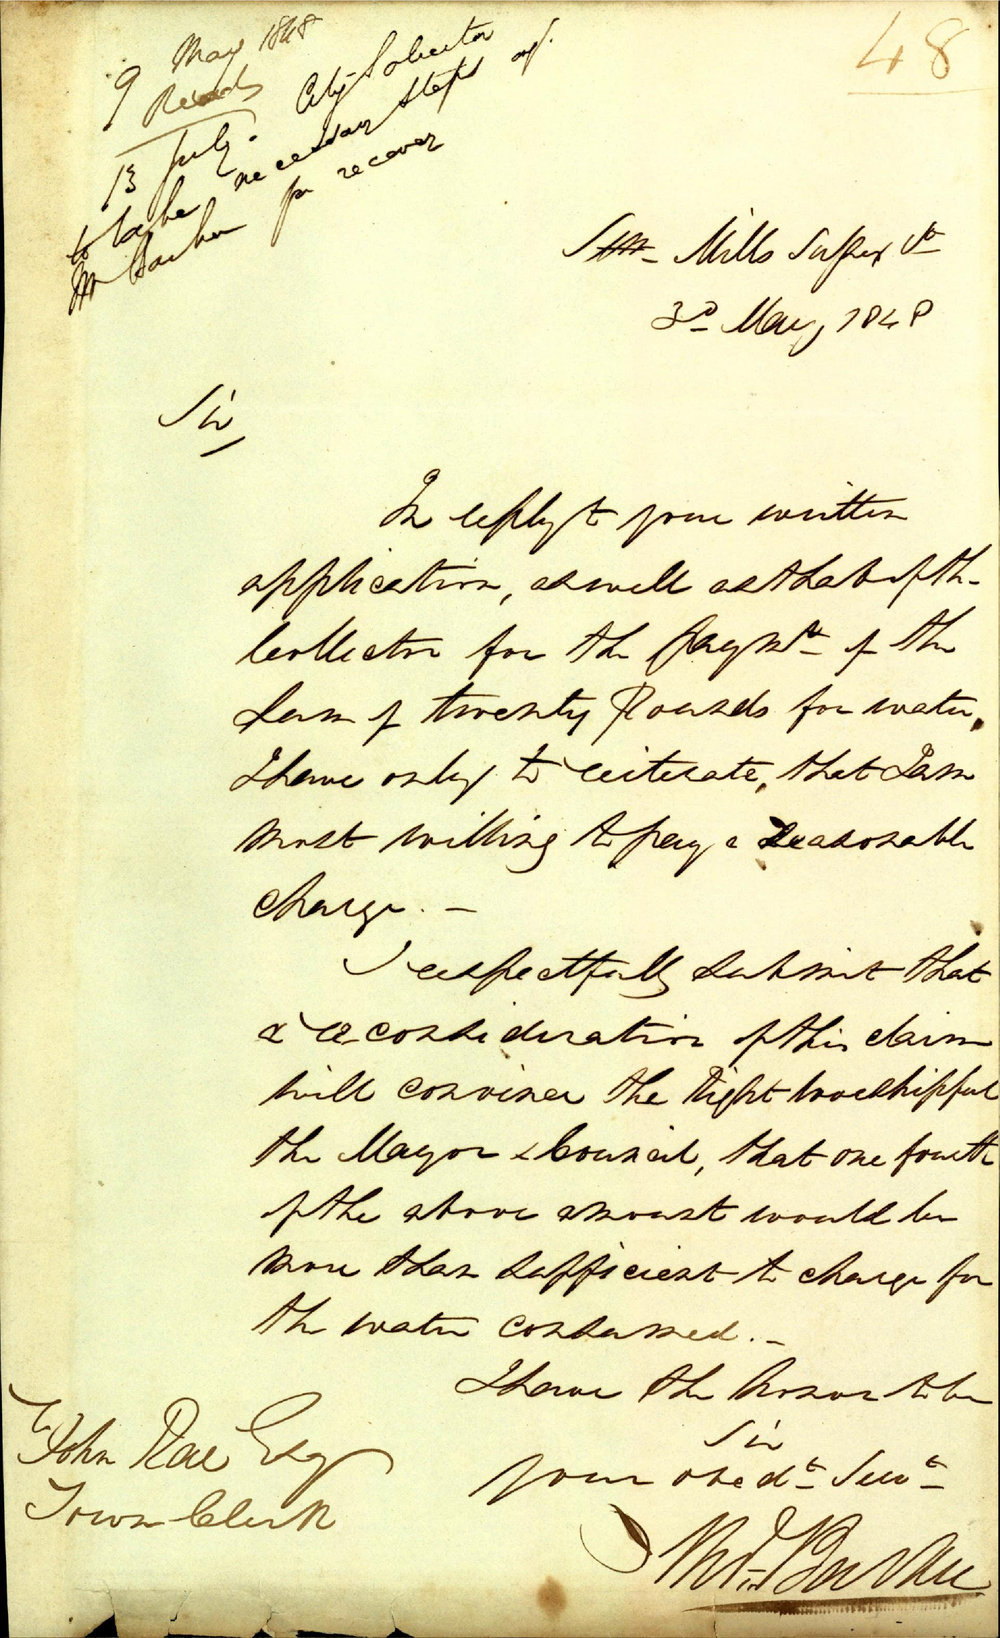 48
9 May 1848
Read
13 July. City Solicitor
to take necessary steps agt.
Mr Barker for recovery
Stm Mills Sussex St
3d May 1848
Sir
In reply to your written
application, as well as that of the
Collector for the paymt of the
Sum of twenty Pounds for water,
I have only to reiterate, that I am
most willing to pay a reasonable
charge. —
I respectfully submit that
a reconsideration of this claim
will convince the Right Worshipful
the Mayor & Council, that one fourth
of the above amount would be
more than sufficient to charge for
the water consumed. —
I have the honor to be
Sir
your obedt Servt
Thos Barker
John Rae Esq
Town Clerk